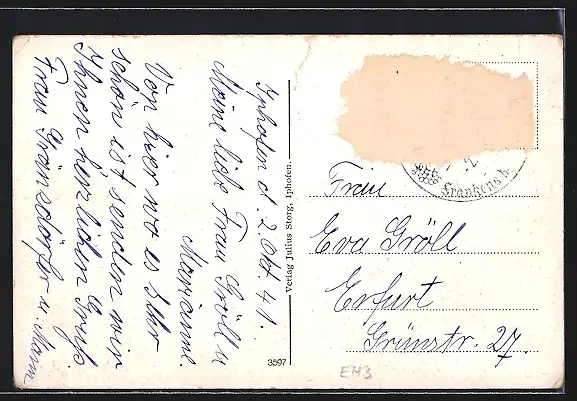 Iphofen d. 2 Okt 41.
Meine liebe Frau Gröll u
Marianne.
Von hier wo es sehr
schön ist senden wir
Ihnen herzlichen Gruß.
Frau Gränzdörfer u. Mann
Verlag Julius Storg, Iphofen.
3597
Frankens
Frau
Eva Gröll
Erfurt
Grünstr. 27.
EH3